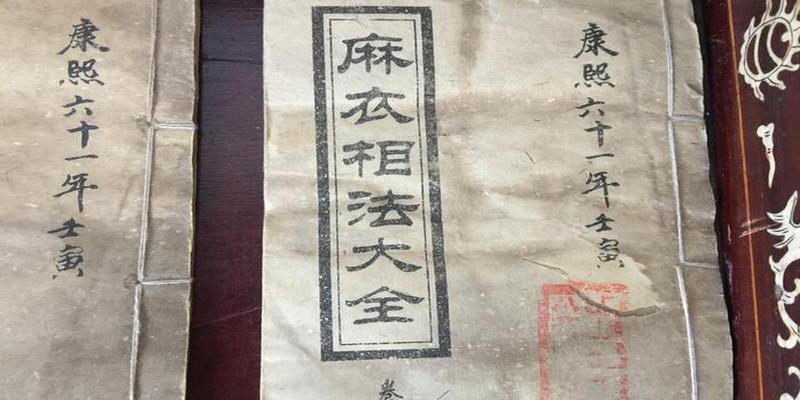 康熙六十一年壬寅
麻衣相法大全
卷
康熙六十一年壬寅